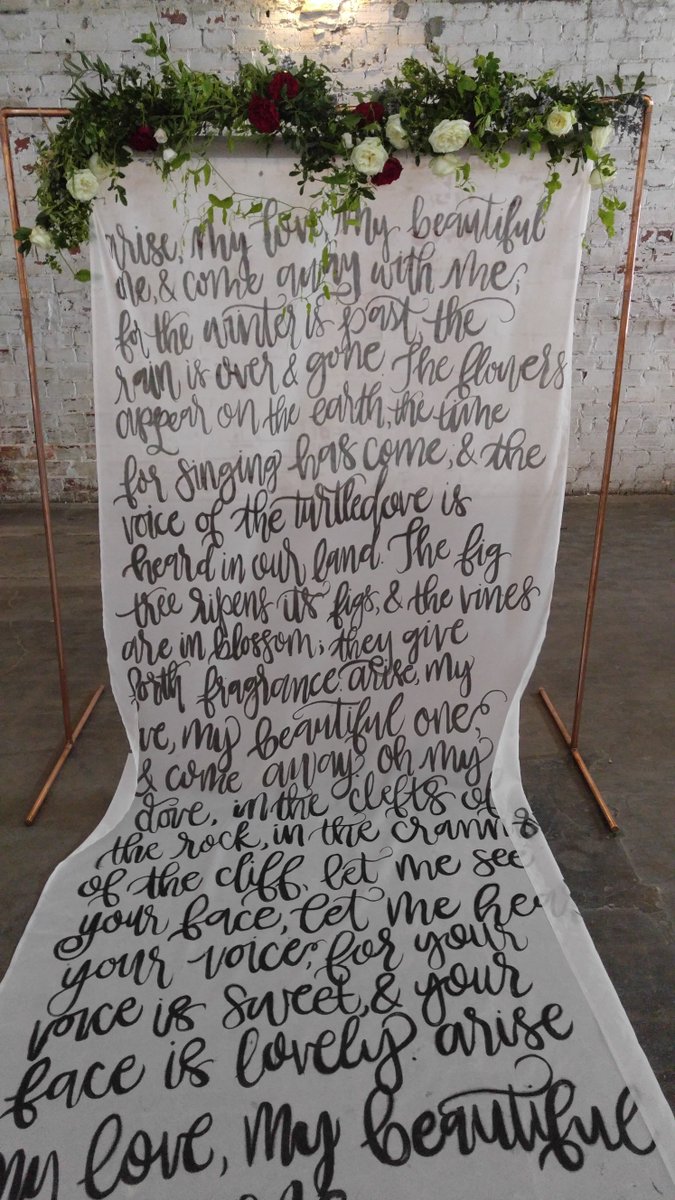 arise, my love, my beautiful
one, & come away with me;
for the winter is past, the
rain is over & gone. The flowers
appear on the earth, the time
for singing has come, & the
voice of the turtledove is
heard in our land. The fig
tree ripens its figs, & the vines
are in blossom; they give
forth fragrance. arise, my
ve, my beautiful one,
& come away. oh my
dove, in the clefts of
the rock, in the crann
of the cliff, let me see
your face, let me hear
your voice, for your
voice is sweet, & your
face is lovely. arise
my love, my beautiful